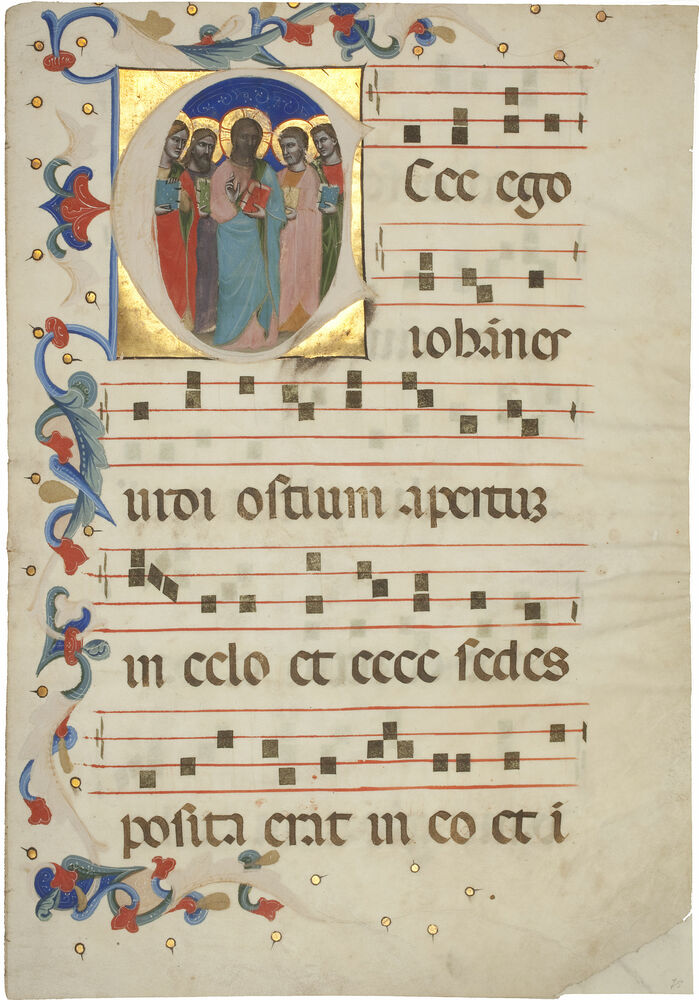 Ecce ego
iohānes
uidi ostium apertuʒ
in celo et ecce sedes
posita erat in eo et i